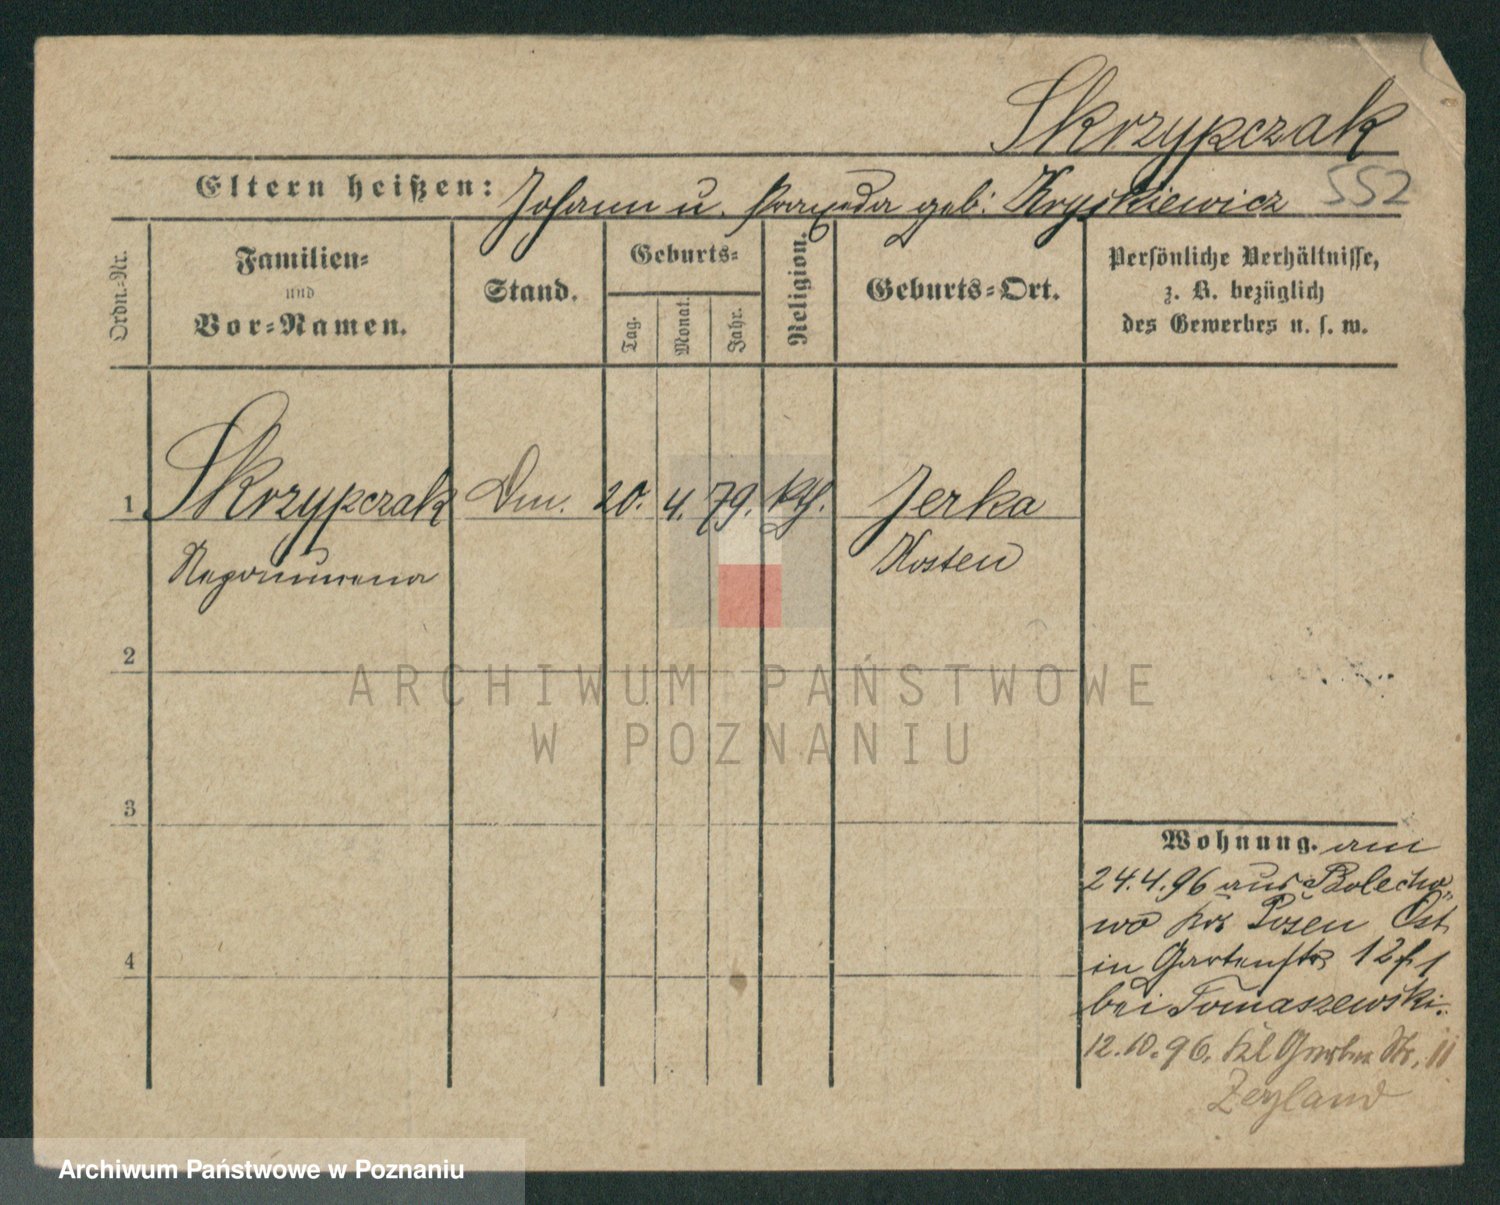 Skrzypczak
552
Eltern heißen: Johann u. Praxeda geb: Kryśkiewicz
Ordn.-Nr.
Familien-
und
Vor-Namen.
Stand.
Geburts-
Tag.
Monat.
Jahr.
Religion.
Geburts-Ort.
Persönliche Verhältnisse,
z. B. bezüglich
des Gewerbes u. s. w.
1 Skrzypczak Dm. 20. 4. 79. kth. Jerka
Nepomucena Kosten
2
3
4
Wohnung. am
24.4.96 aus Bolecho-
wo Krs Posen Ost
in Gartenstr 12
bei Tomaszewski.
12.10.96. Kl Gerber Str. 11
Zeyland
ARCHIWUM PAŃSTWOWE
W POZNANIU
Archiwum Państwowe w Poznaniu